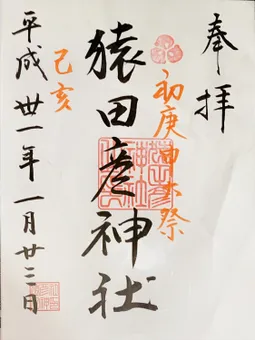 奉拝
初庚申大祭
猿田彦神社
己亥
平成丗一年一月廿二日